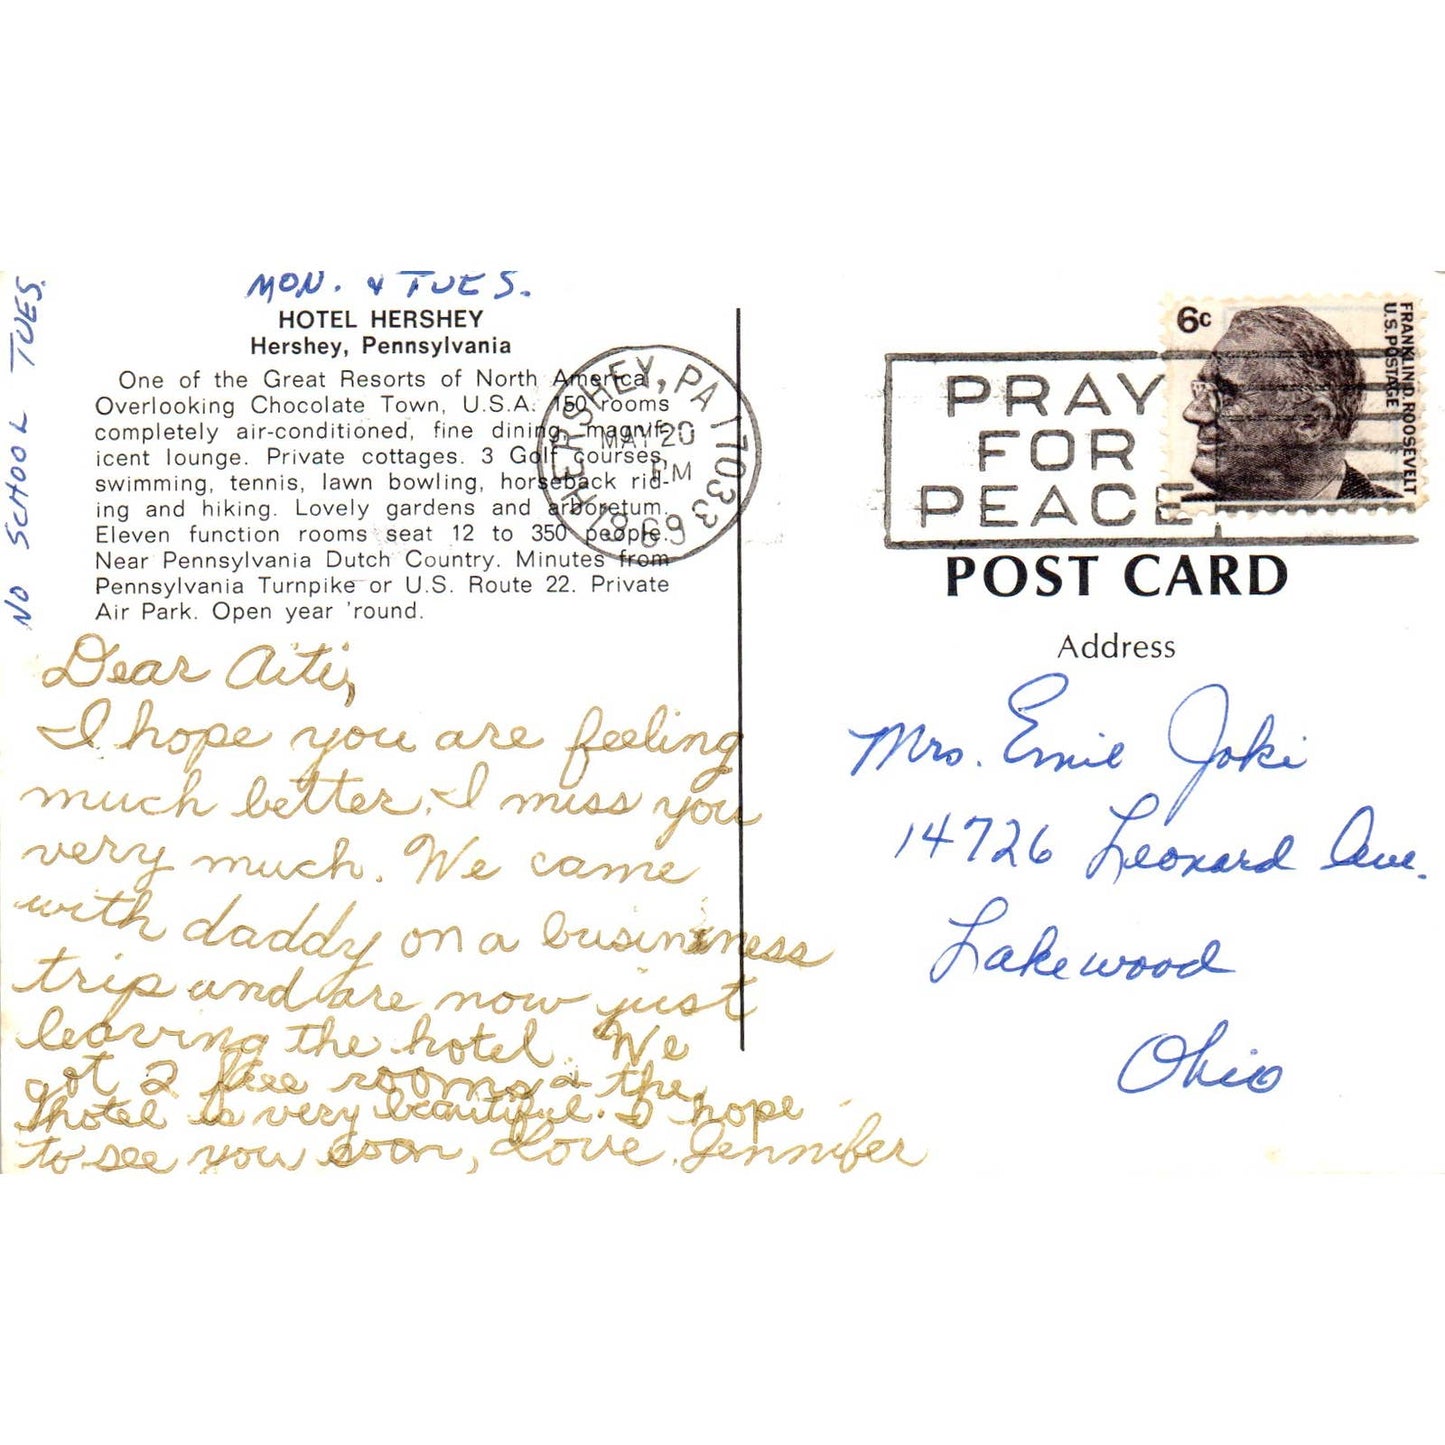 MON. & TUES.
NO SCHOOL TUES.
HOTEL HERSHEY
Hershey, Pennsylvania
One of the Great Resorts of North America.
Overlooking Chocolate Town, U.S.A. 150 rooms
completely air-conditioned, fine dining, magnif-
icent lounge. Private cottages. 3 Golf courses,
swimming, tennis, lawn bowling, horseback rid-
ing and hiking. Lovely gardens and arboretum.
Eleven function rooms seat 12 to 350 people.
Near Pennsylvania Dutch Country. Minutes from
Pennsylvania Turnpike or U.S. Route 22. Private
Air Park. Open year 'round.
Dear Aiti,
I hope you are feeling
much better. I miss you
very much. We came
with daddy on a business
trip and are now just
leaving the hotel. We
got 2 free rooms & the
hotel is very beautiful. I hope
to see you soon, Love, Jennifer
HERSHEY, PA 17033
MAY 20
PM
1969
PRAY
FOR
PEACE
6c
FRANKLIN D. ROOSEVELT
U.S. POSTAGE
POST CARD
Address
Mrs. Emil Joki
14726 Leonard Ave.
Lakewood
Ohio